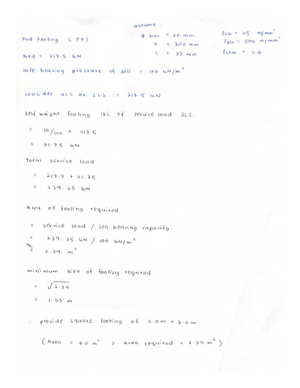 assume :
Pad Footing ( F7 )
φ bar = 20 mm
fck = 25 N/mm²
h = 300 mm
fyk = 500 N/mm²
Ned = 217.5 kN
c = 25 mm
fctm = 2.6
Safe bearing pressure of soil = 100 kN/m²
consider ULS as SLS = 217.5 kN
self weight footing 10% of service load SLS.
= 10/100 × 217.5
= 21.75 kN
total service load
= 217.5 + 21.75
= 239.25 kN
Area of footing required
= service load / soil bearing capacity.
= 239.25 kN / 100 kN/m²
= 2.39 m²
minimum size of footing required
= √2.39
= 1.55 m
∴ provide square footing of 2.0m × 2.0m
(Area = 4.0 m² > Area required = 2.39 m²)